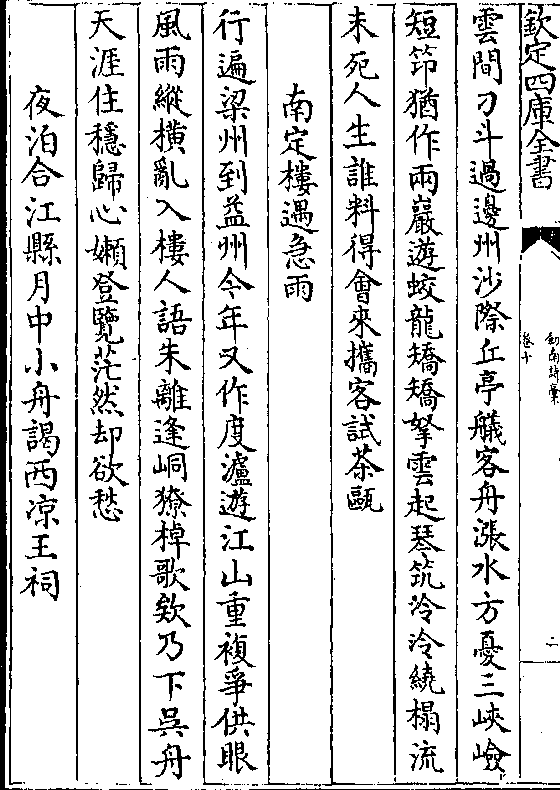 欽定四庫全書
劍南詩稾
卷十
二
雲間刁斗過邊州沙際丘亭艤客舟漲水方憂三峽嶮
短笻猶作兩巖遊蛟龍矯矯拏雲起琴筑泠泠繞榻流
未死人生誰料得會來攜客試茶甌
南定樓遇急雨
行遍梁州到益州今年又作度瀘遊江山重複爭供眼
風雨縱橫亂入樓人語朱離逢峒獠棹歌欸乃下吳舟
天涯住穩歸心嬾登覽茫然却欲愁
夜泊合江縣月中小舟謁西凉王祠